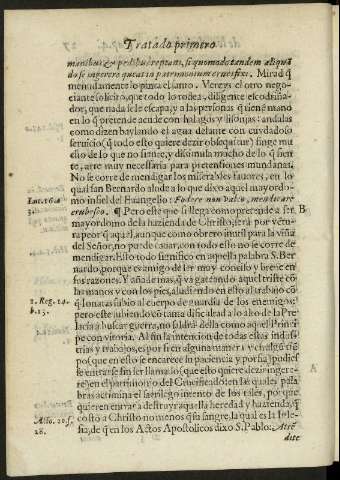 Tratado primero
manibus & pedibus reptans, si quomodo tandem aliquã
do se ingerere queat in patrimonium crucifixi. Mirad q̃
menudamente lo pinta el santo. Vereys el otro nego-
ciante solicito, que todo lo rodea, diligente escodriña-
dor, que nada se le escapa, y a las personas q̃ tienẽ mano
en lo q̃ pretende acude con halagos y lisonjas: andalas
como dizen baylando el agua delante con cuydadoso
seruicio (q̃ todo esto quiere dezir obsequitur) finge mu
cho de lo que no siente, y disimula mucho de lo q̃ sien-
te, arte muy necessaria para pretensiones mundanas.
No se corre de mendigar los miserables fauores, en lo
qual san Bernardo alude a lo que dixo aquel mayordo-
mo infiel del Euangelio: Fodere non valeo, mendicare
Luc. 16. a
erubesco. ¶ Pero este que si llega como pretende a ser B
mayordomo de la hazienda de Christo, serà por vẽtu-
ra peor q̃ aquel, aunque como obrero inutil para la viña
del Señor, no puede cauar, con todo esto no se corre de
mendigar. Esto todo significò en aquella palabra S. Ber
nardo, porque es amigo de ser muy conciso y breue en
sus razones. Y añade mas, q̃ va gateando aquel triste cõ
las manos y con los pies, aludiendo en esto al trabajo cõ
2. Reg. 14.
b. 13.
q̃ Ionatas subio al cuerpo de guardia de los enemigos:
pero este subiendo cõ tanta dificultad a lo alto de la Pre
lacia a buscar guerra, no saldrà della como aquel Princi
pe con vitoria. Al fin la intencion de todas estas indus-
trias y trabajos, es por si en alguna manera y en algũ tiẽ
po (que en esto se encarece su paciencia y porfia) pudies
se entrarse sin ser llamado (que esto quiere dezir ingere-
re) en el patrimonio del Crucificado: en las quales pala
bras actimina el sacrilego intento de los tales, por que
quieren entrar a destruyr aquella heredad y hazienda, q̃
costò a Christo no menos q̃ su sangre, la qual es la Igle-
Acto. 20. f.
28.
sia, de q̃ en los Actos Apostolicos dixo S. Pablo: